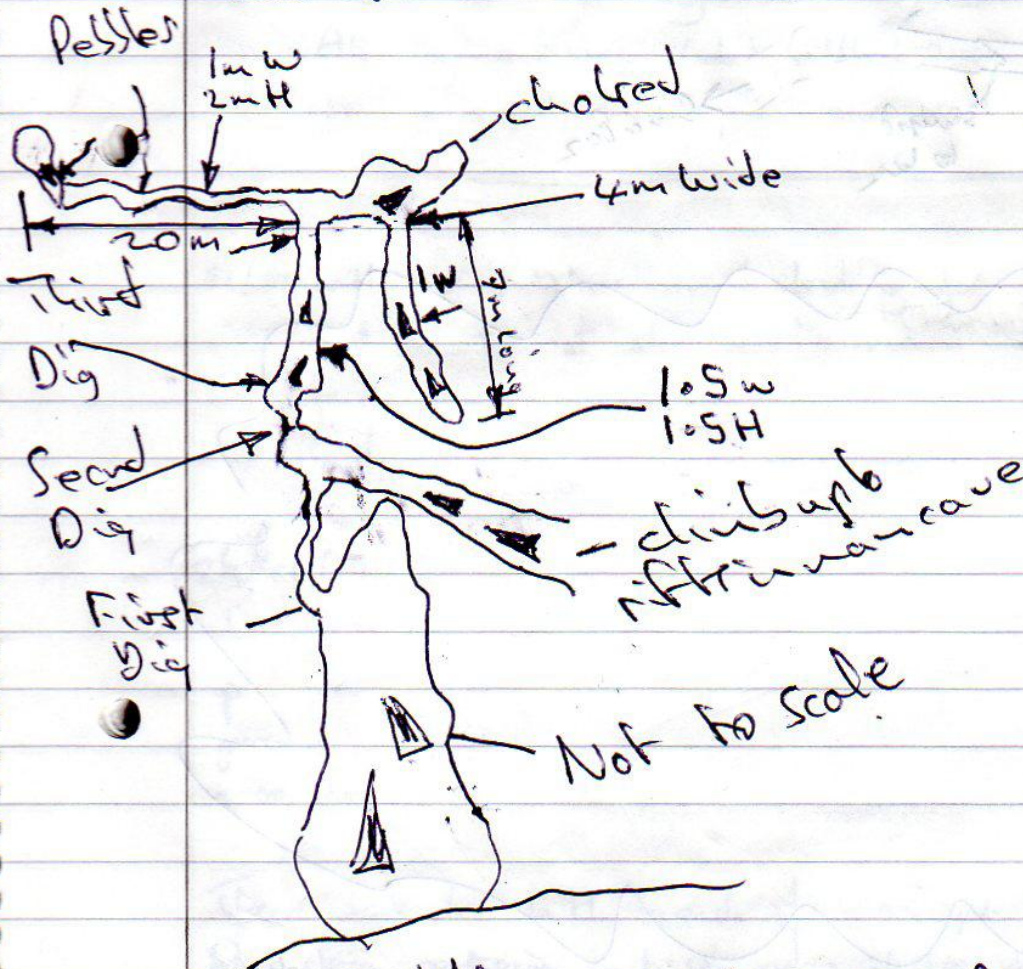 Pebbles
1m W
2m H
choked
4m wide
20m
1W
Third
Dig
1.5w
1.5H
Second
Dig
climb up to
rift in main cave
First
Dig
Not to scale